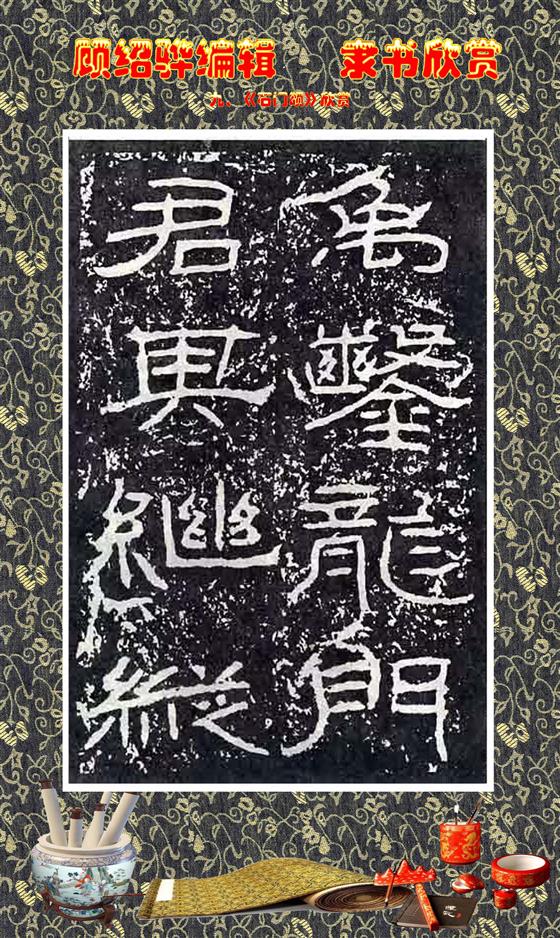 顾绍骅编辑 隶书欣赏
九、《石门颂》欣赏
禹鑿龍門
君其繼縱